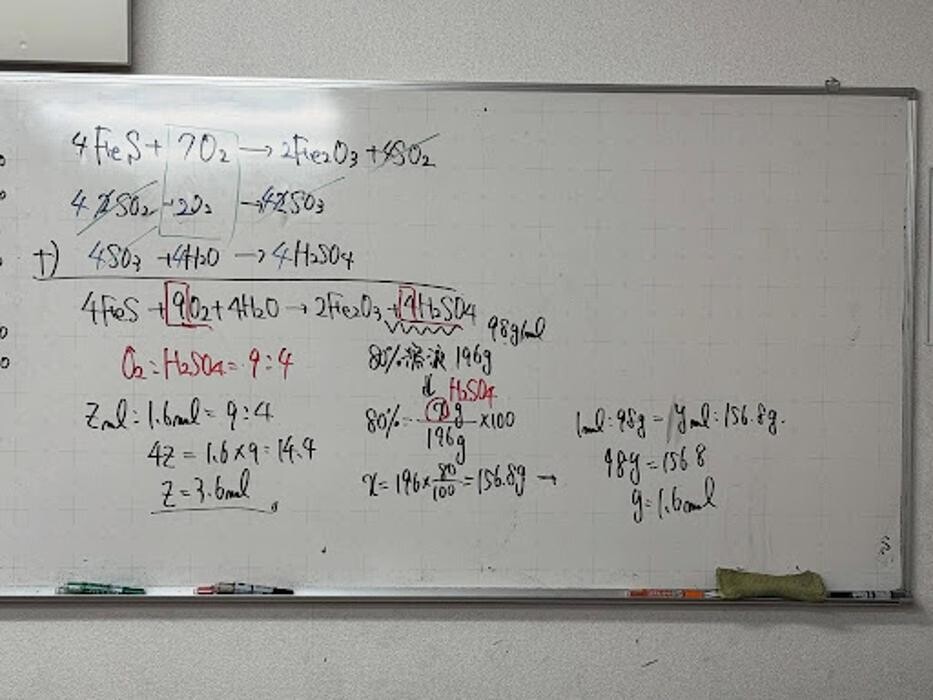 4FeS + 7O₂ → 2Fe₂O₃ + 4SO₂
4 2SO₂ + 2O₂ → 4 2SO₃
+) 4SO₃ + 4H₂O → 4H₂SO₄
4FeS + 9O₂ + 4H₂O → 2Fe₂O₃ + 4H₂SO₄
98g/mol
O₂ : H₂SO₄ = 9 : 4
z mol : 1.6mol = 9 : 4
4z = 1.6 × 9 = 14.4
z = 3.6mol
80%溶液 196g
⇓ H₂SO₄
80% = x g / 196g × 100
x = 196 × 80/100 = 156.8g →
1mol : 98g = y mol : 156.8g.
98y = 156.8
y = 1.6mol